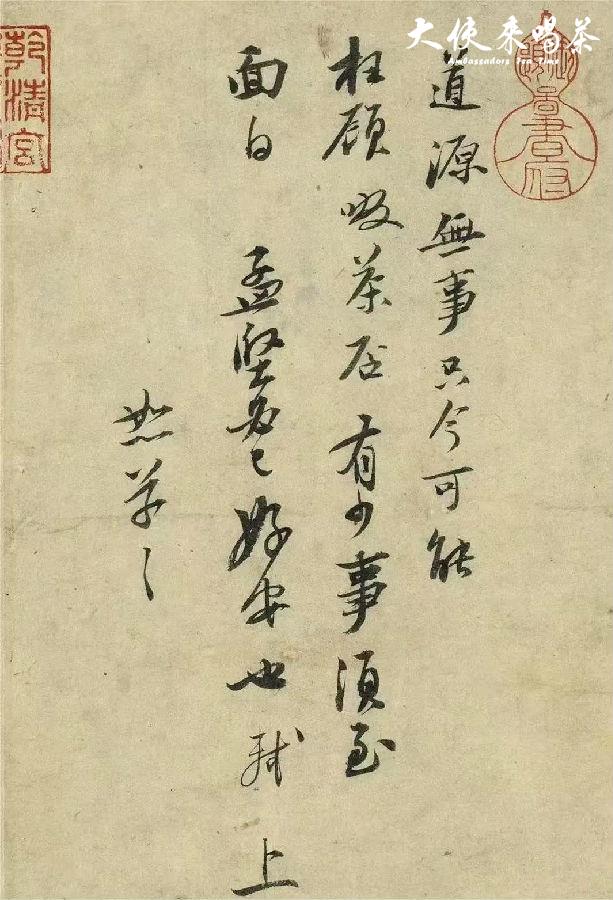 大使來喝茶
Ambassadors Tea Time
道源無事只今可能
枉顧啜茶否有少事須至
面白 孟堅必已好安也 軾上
恕草〻
乾清宮